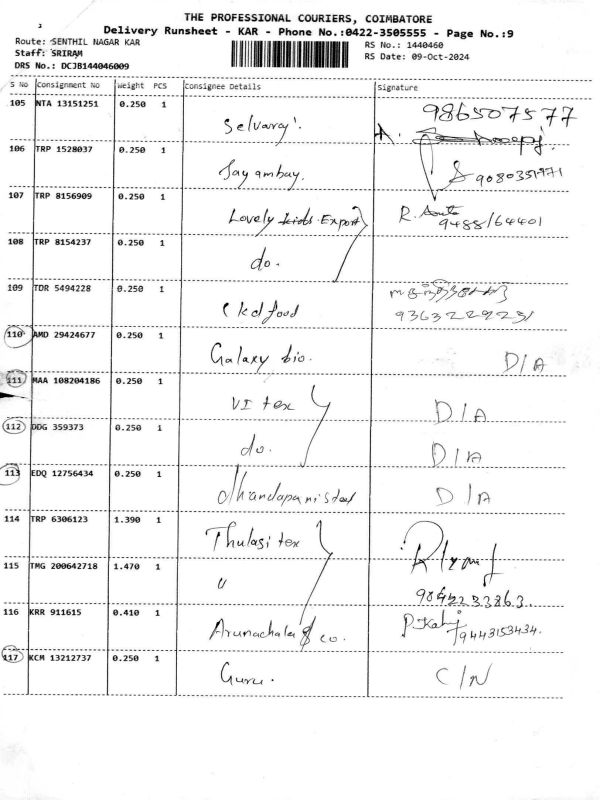 THE PROFESSIONAL COURIERS, COIMBATORE
Delivery Runsheet - KAR - Phone No.:0422-3505555 - Page No.:9
Route: SENTHIL NAGAR KAR
RS No.: 1440460
Staff: SRIRAM
RS Date: 09-Oct-2024
DRS No.: DCJB144046009
S No Consignment No Weight PCS Consignee Details Signature
105 NTA 13151251 0.250 1 Selvaraj. 9865075777
106 TRP 1528037 0.250 1 Jay ambay. 9080351971
107 TRP 8156909 0.250 1 Lovely kids Export R. 9488164401
108 TRP 8154237 0.250 1 do.
109 TDR 5494228 0.250 1 Ckd food 9363229231
110 AMD 29424677 0.250 1 Galaxy bio. D/A
111 MAA 108204186 0.250 1 VI tex D/A
112 DDG 359373 0.250 1 do. D/A
113 EDQ 12756434 0.250 1 dhandapani steel D/A
114 TRP 6306123 1.390 1 Thulasi tex
115 TMG 200642718 1.470 1 " 9842233863.
116 KRR 911615 0.410 1 Arunachala & co. 9443153434.
117 KCM 13212737 0.250 1 Guru. C/N